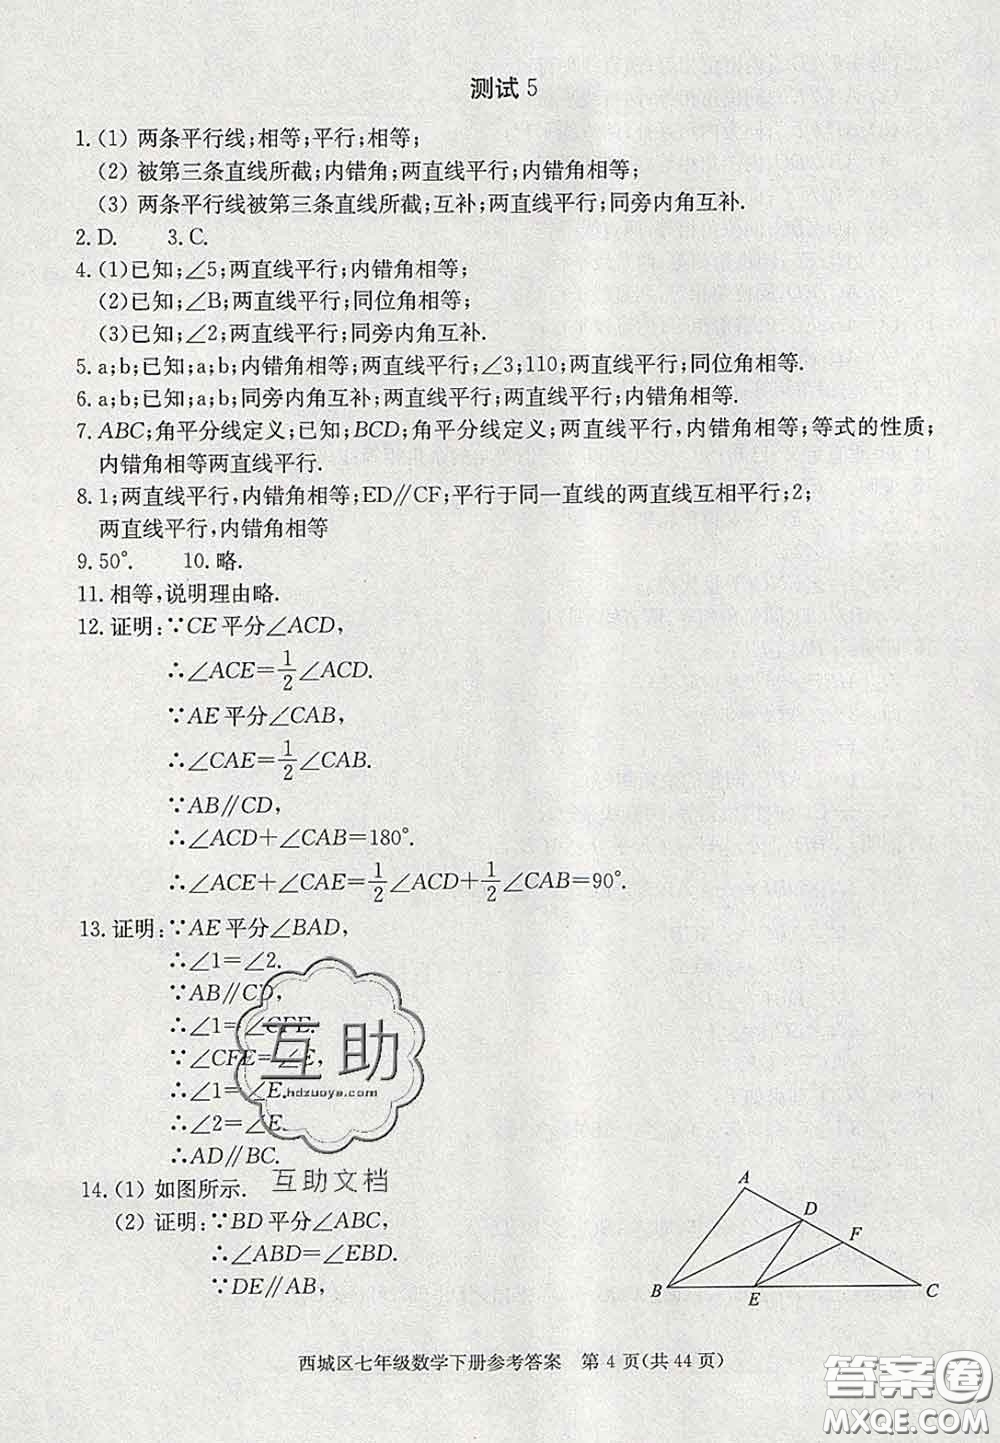 测试 5
1.(1) 两条平行线;相等;平行;相等;
(2) 被第三条直线所截;内错角;两直线平行;内错角相等;
(3) 两条平行线被第三条直线所截;互补;两直线平行;同旁内角互补.
2. D. 3. C.
4.(1)已知;∠5;两直线平行;内错角相等;
(2)已知;∠B;两直线平行;同位角相等;
(3)已知;∠2;两直线平行;同旁内角互补.
5. a;b;已知;a;b;内错角相等;两直线平行;∠3;110;两直线平行;同位角相等.
6. a;b;已知;a;b;同旁内角互补;两直线平行;两直线平行;内错角相等.
7. ABC;角平分线定义;已知;BCD;角平分线定义;两直线平行,内错角相等;等式的性质;
内错角相等两直线平行.
8. 1;两直线平行,内错角相等;ED∥CF;平行于同一直线的两直线互相平行;2;
两直线平行,内错角相等
9. 50°. 10. 略.
11. 相等,说明理由略.
12. 证明:∵CE平分∠ACD,
∴∠ACE=1/2∠ACD.
∵AE平分∠CAB,
∴∠CAE=1/2∠CAB.
∵AB∥CD,
∴∠ACD+∠CAB=180°.
∴∠ACE+∠CAE=1/2∠ACD+1/2∠CAB=90°.
13. 证明:∵AE平分∠BAD,
∴∠1=∠2.
∵AB∥CD,
∴∠1=∠CFE.
∵∠CFE=∠E,
∴∠1=∠E.
∴∠2=∠E.
∴AD∥BC.
互助
hdzuoye.com
互助文档
14.(1) 如图所示.
(2) 证明:∵BD平分∠ABC,
∴∠ABD=∠EBD.
∵DE∥AB,
A
D
F
B
E
C
西城区七年级数学下册参考答案 第 4 页(共 44 页)
答案圈
MXQE.COM